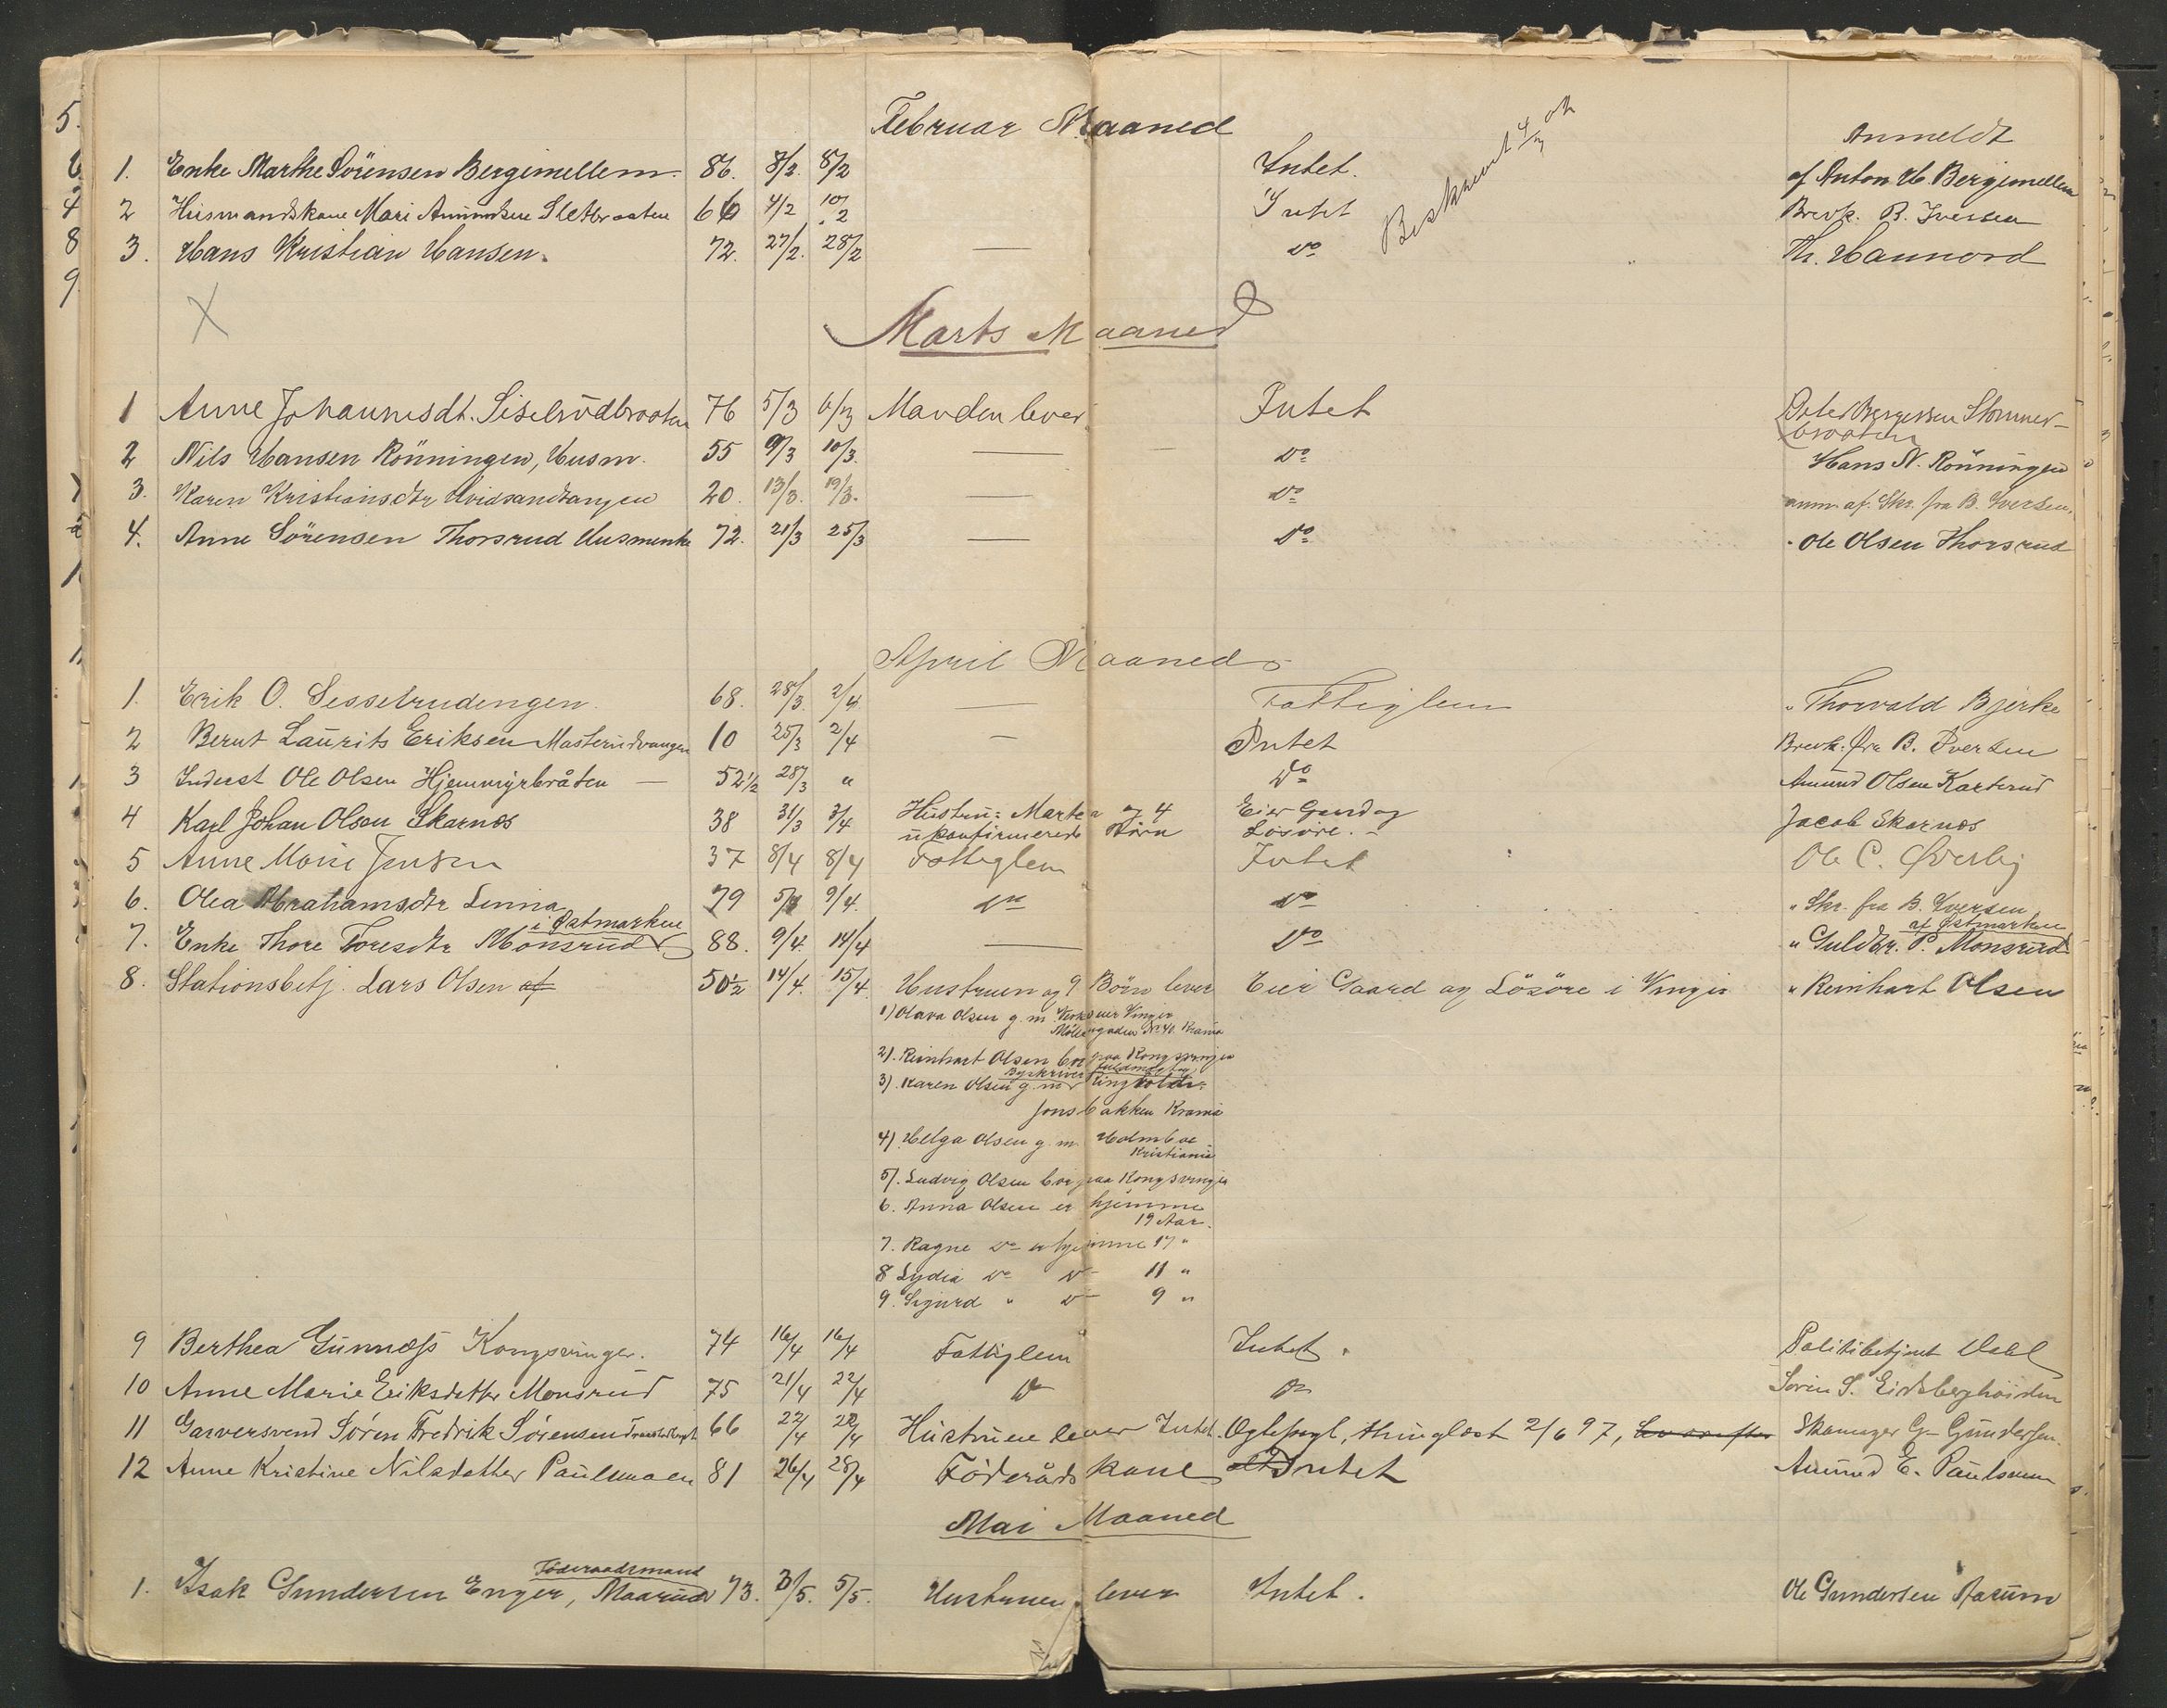 Februar Maaned
Anmeldt
1. Enke Marthe Sörensen Bergimellem. 86. 8/2. 8/2 Intet. af Anton H. Bergimellem
2 Husmandskone Mari Amundsen Sletbraaten 66 4/2 10/2 Intet Brevk. B. Iversen
3. Hans Kristian Hansen. 72. 27/2. 28/2 — Do Th. Hannord
X
Marts Maaned
1 Anne Johannesdt. Siselrudbraaten 76 5/3 6/3 Manden lever. Intet Peter Børgersen Stommer-
braaten
2 Nils Hansen Rönningen, Husm. 55 9/3 10/3. — Do Hans N. Rönningen
3. Karen Kristiansdtr Hvidsandtangen 20. 13/3. 19/3. — Do anm. af. Skr. fra B. Iversen.
4. Anne Sörensen Thorsrud Husmenke 72. 21/3 25/3 — Do. Ole Olsen Thorsrud
April Maaned
1. Erik O. Sesselrudengen. 68. 28/3. 2/4. — Fattiglem " Thorvald Bjerke
2 Bernt Laurits Eriksen Masterudvangen 10 25/3 2/4 — Intet Brevk. fra B. Iversen
3 Inderst Ole Olsen Hjemmyrbråten — 52 1/2 28/3 " Do Amund Olsen Karterud
4 Karl Johan Olsen Skarnes 38 31/3 3/4 Hustru: Marthea og 4 Eier Gaard og Jacob Skarnes
ukonfirmerede Börn Lösöre. -
5 Anne Marie Jensen 37 8/4 8/4 Fattiglem Intet Ole C. Øverby
6. Olea Abrahamsdtr Linna 79 5/4 9/4. Do Do " Skr. fra B. Iversen
i Østmarken af Østmarken
7. Enke Thore Toresdtr Monsrud 88. 9/4. 14/4 — Do " Guldbr. P. Monsrud
8. Stationsbetj. Lars Olsen af 50 1/2 14/4. 15/4. Hustruen og 9 Börn lever Eier Gaard og Lösöre i Vinger " Reinhart Olsen
1) Olava Olsen g. m. Vinger
Möllergaden No 40. Krania
2). Reinhart Olsen bor paa Kongsvinger
Byskriver fuldmægtig
3). Karen Olsen g. m. Ringvold
Jonsbakken Krania
4). Helga Olsen g. m. Holmboe
Kristiania
5). Ludvig Olsen bor paa Kongsvinger
6. Anna Olsen er hjemme
19 Aar.
7. Ragne Do er hjemme 17 "
8 Lydia Do Do 11 "
9. Sigurd " Do 9 "
9 Berthea Gunnæss Kongsvinger. 74 16/4 16/4 Fattiglem Intet. Politibetjent Dahl
10 Anne Marie Eriksdatter Monsrud 75 21/4 22/4 Do Do Søren S. Eidsberghøiden
11 Garversvend Sören Fredrik Sörensen 66 22/4 28/4 Hustruen lever Intet. thinglæst 2/6 97, Skomager G. Gundersen.
12 Anne Kristine Nilsdatter Paulsmoen 81 26/4 28/4 Föderådskone Intet Amund E. Paulsmoen
Mai Maaned
Föderaadsmand
1. Isak Gundersen Enger, Maarud 73. 3/5. 5/5. Hustruen lever Intet. Ole Gundersen Aarum